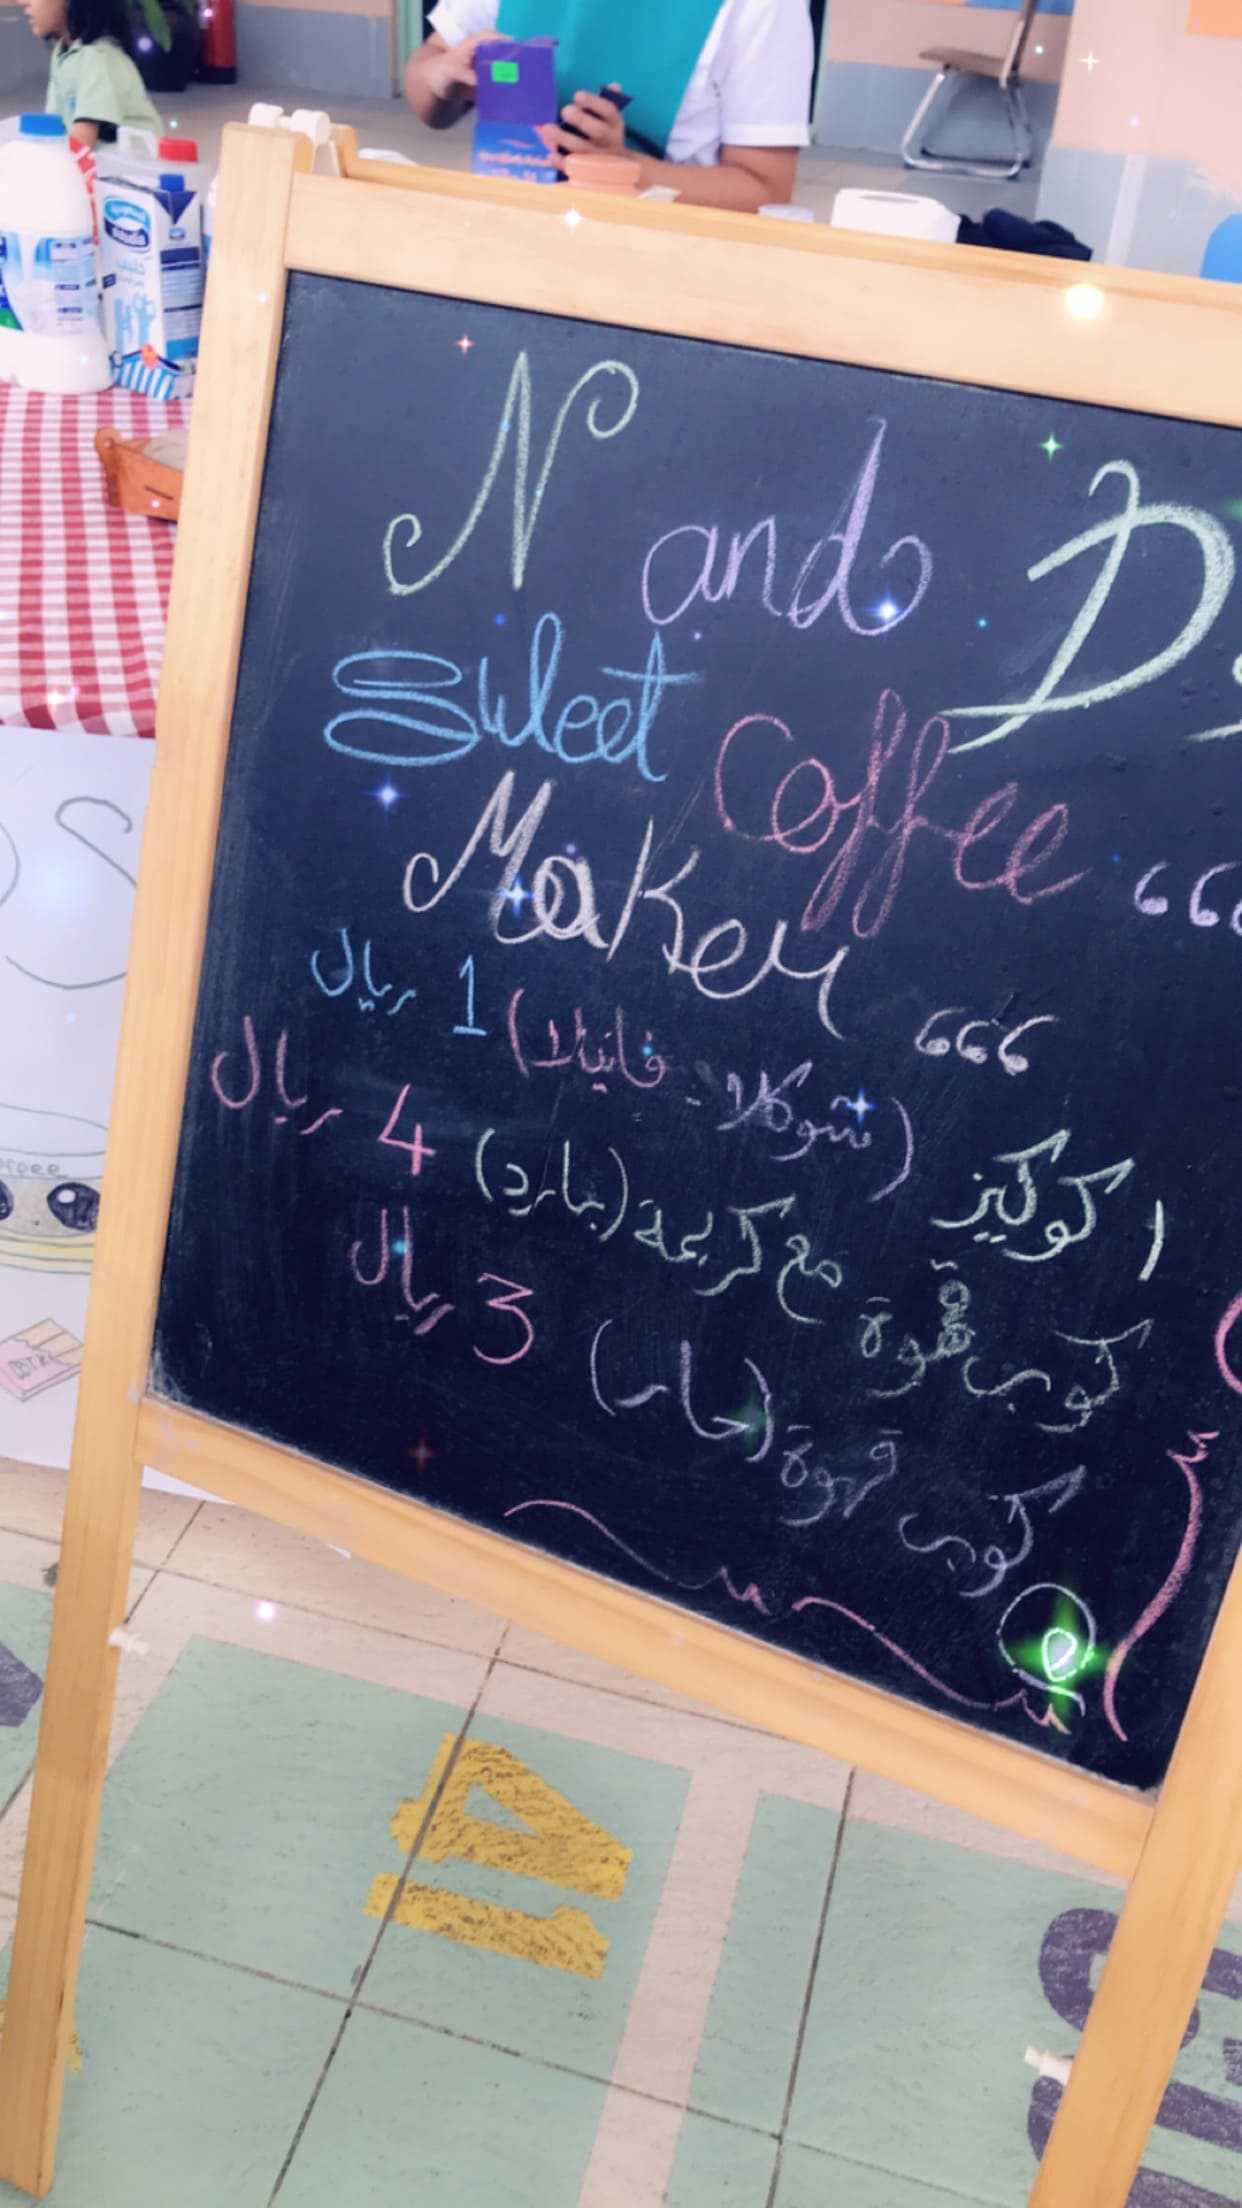 N and D
Sweet Coffee
Maker
666
666
1 كوكيز (شوكلا - فانيلا) 1 ريال
كوب قهوة مع كريمة (بارد) 4 ريال
كوب قهوة (حار) 3 ريال